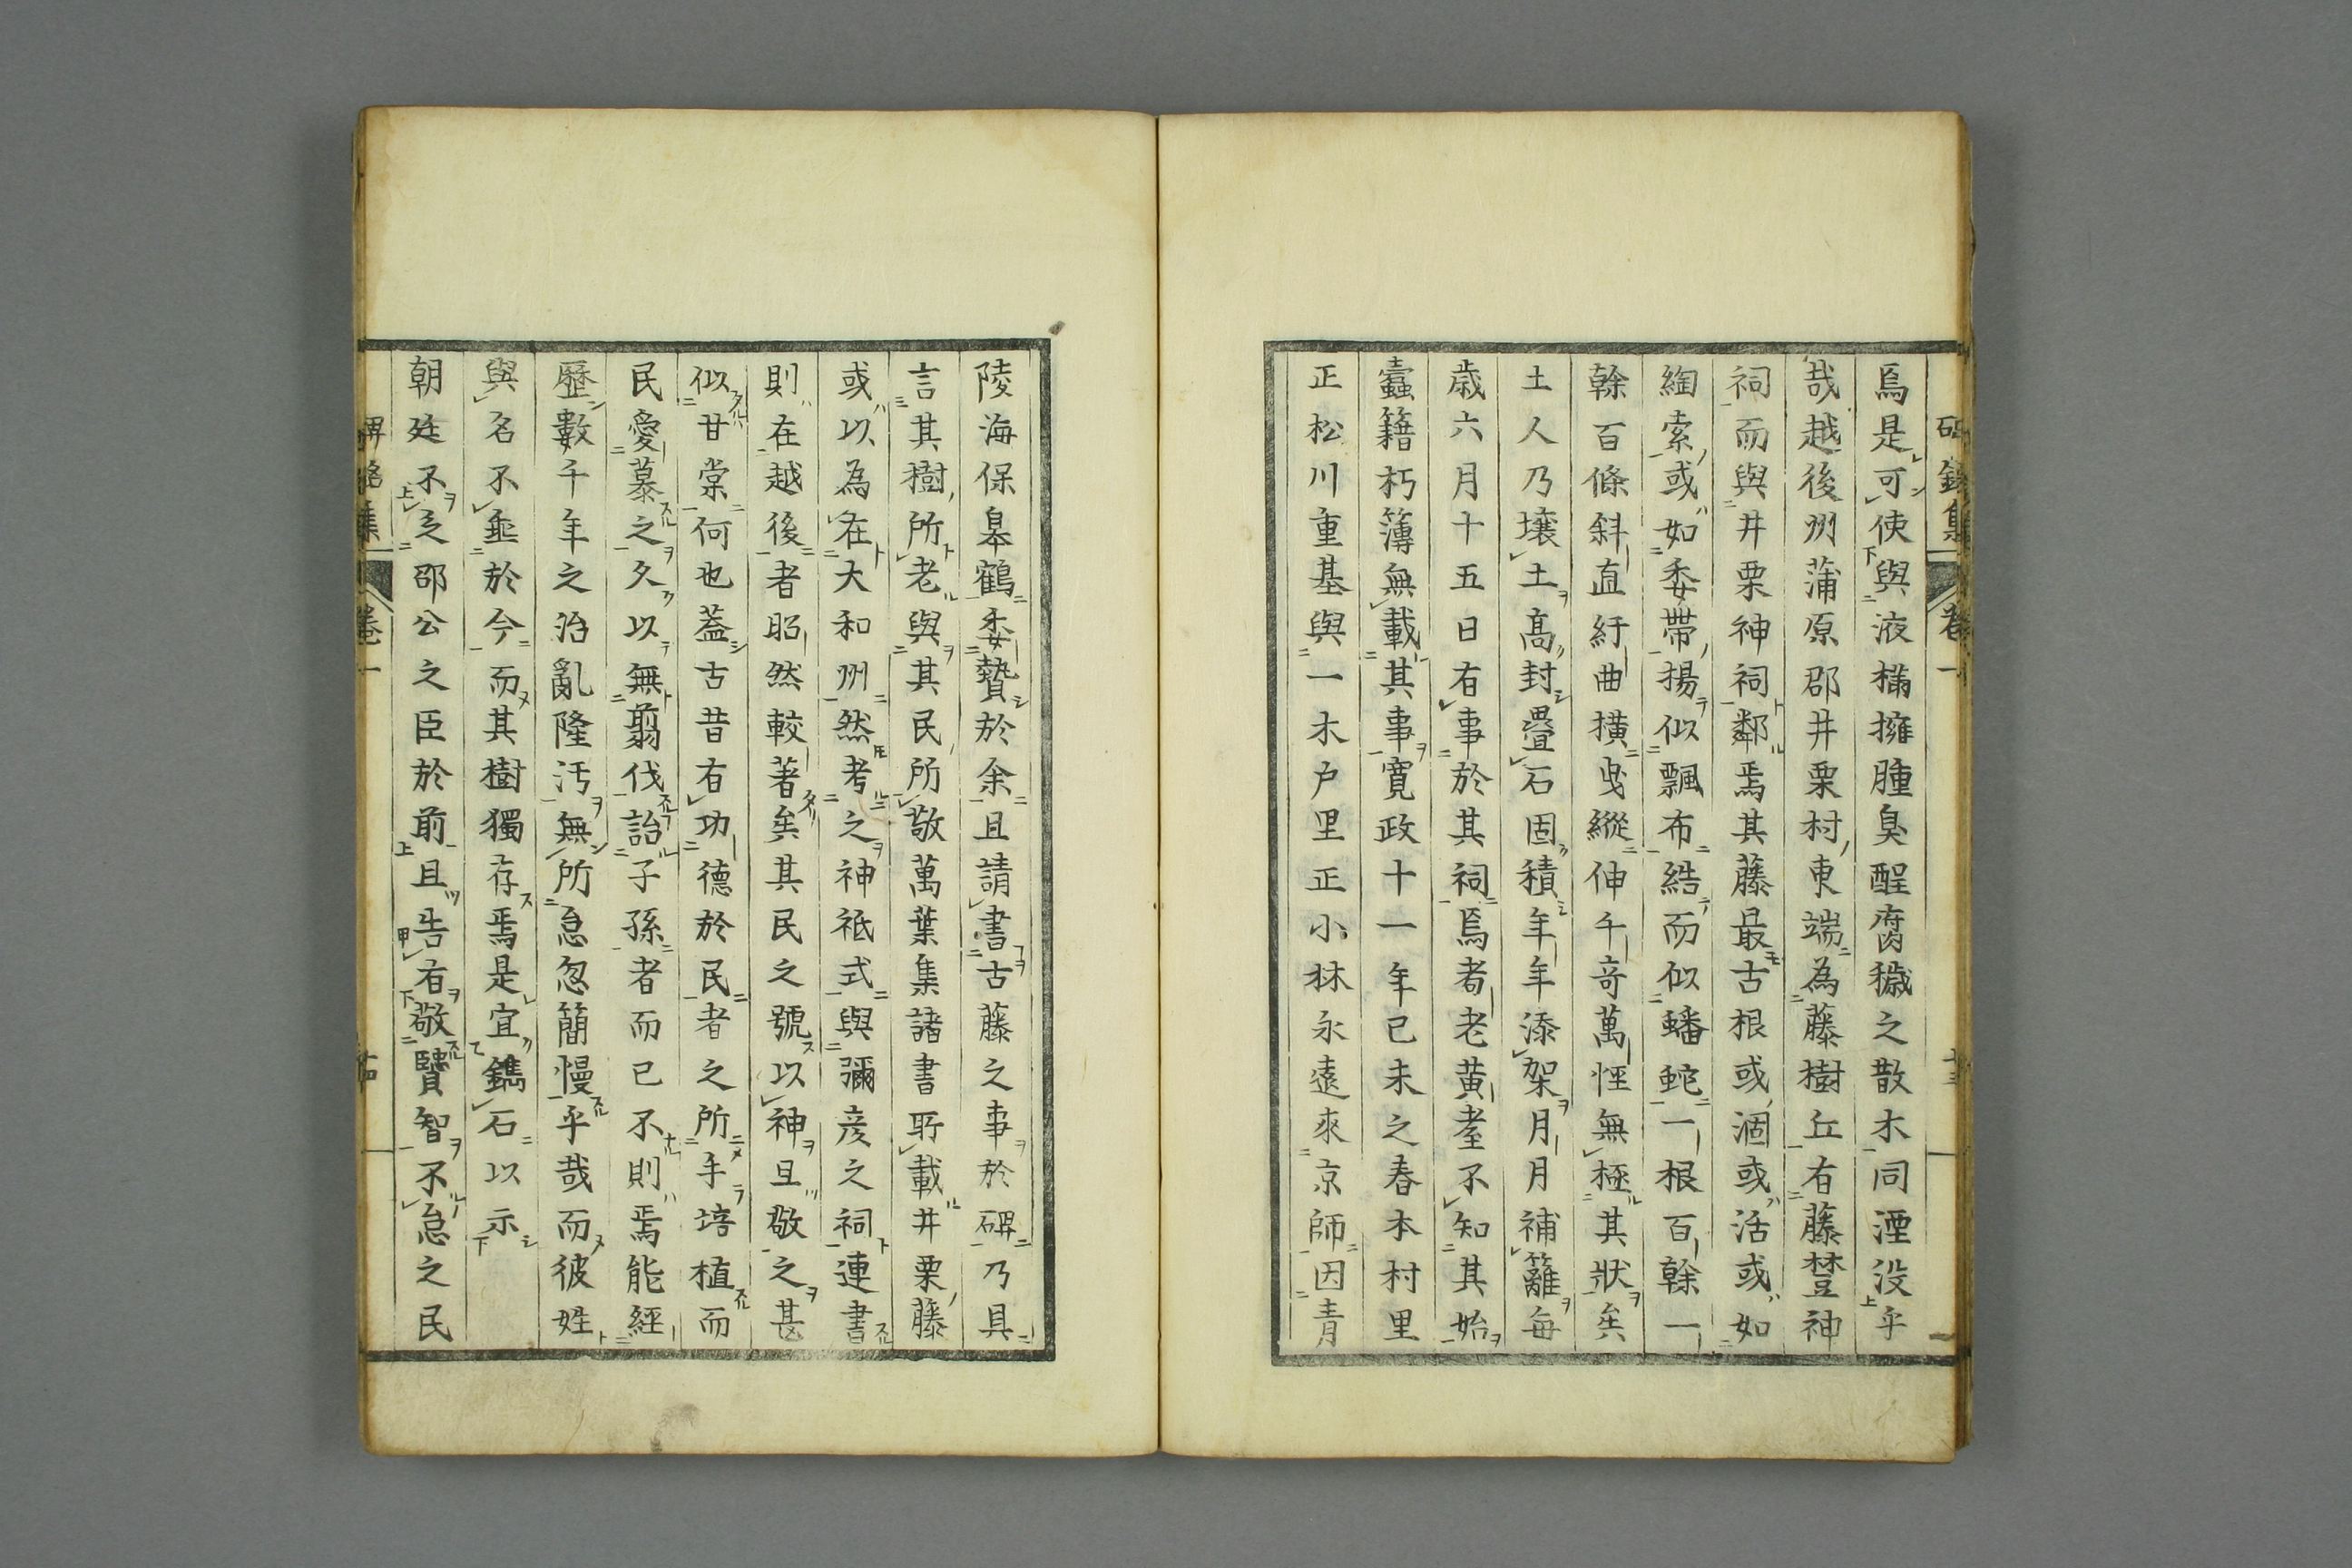 焉是可使與液樠擁腫臭酲腐穢之散木同湮没乎
哉越後州蒲原郡井栗村東端為藤樹丘有藤䇺神
祠而與井栗神祠鄰焉其藤最古根或涸或活或如
綯索或如委帶揚似飄布結而似蟠蛇一根百榦一
榦百條斜直紆曲横曳縱伸千奇萬怪無極其狀矣
土人乃壤土高封疊石固積年年添架月月補籬每
歲六月十五日有事於其祠焉耆老黄耋不知其始
蠧籍朽簿無載其事寬政十一年己未之春本村里
正松川重基與一木户里正小林永遠來京師因青
陵海保皋鶴委贄於余且請書古藤之事於碑乃具
言其樹所老與其民所敬萬葉集諸書所載井栗藤
或以為在大和州然考之神祗式與彌彦之祠連書
則在越後者昭然較著矣其民之號以神且敬之甚
似甘棠何也蓋古昔有功德於民者之所手培植而
民愛慕之久以無翦伐詒子孫者而已不則焉能經
歷數千年之治亂隆汚無所怠忽簡慢乎哉而彼姓
與名不垂於今而其樹獨存焉是宜鐫石以示
朝廷不乏邵公之臣於前且告右敬賢智不怠之民
卷一
卷一